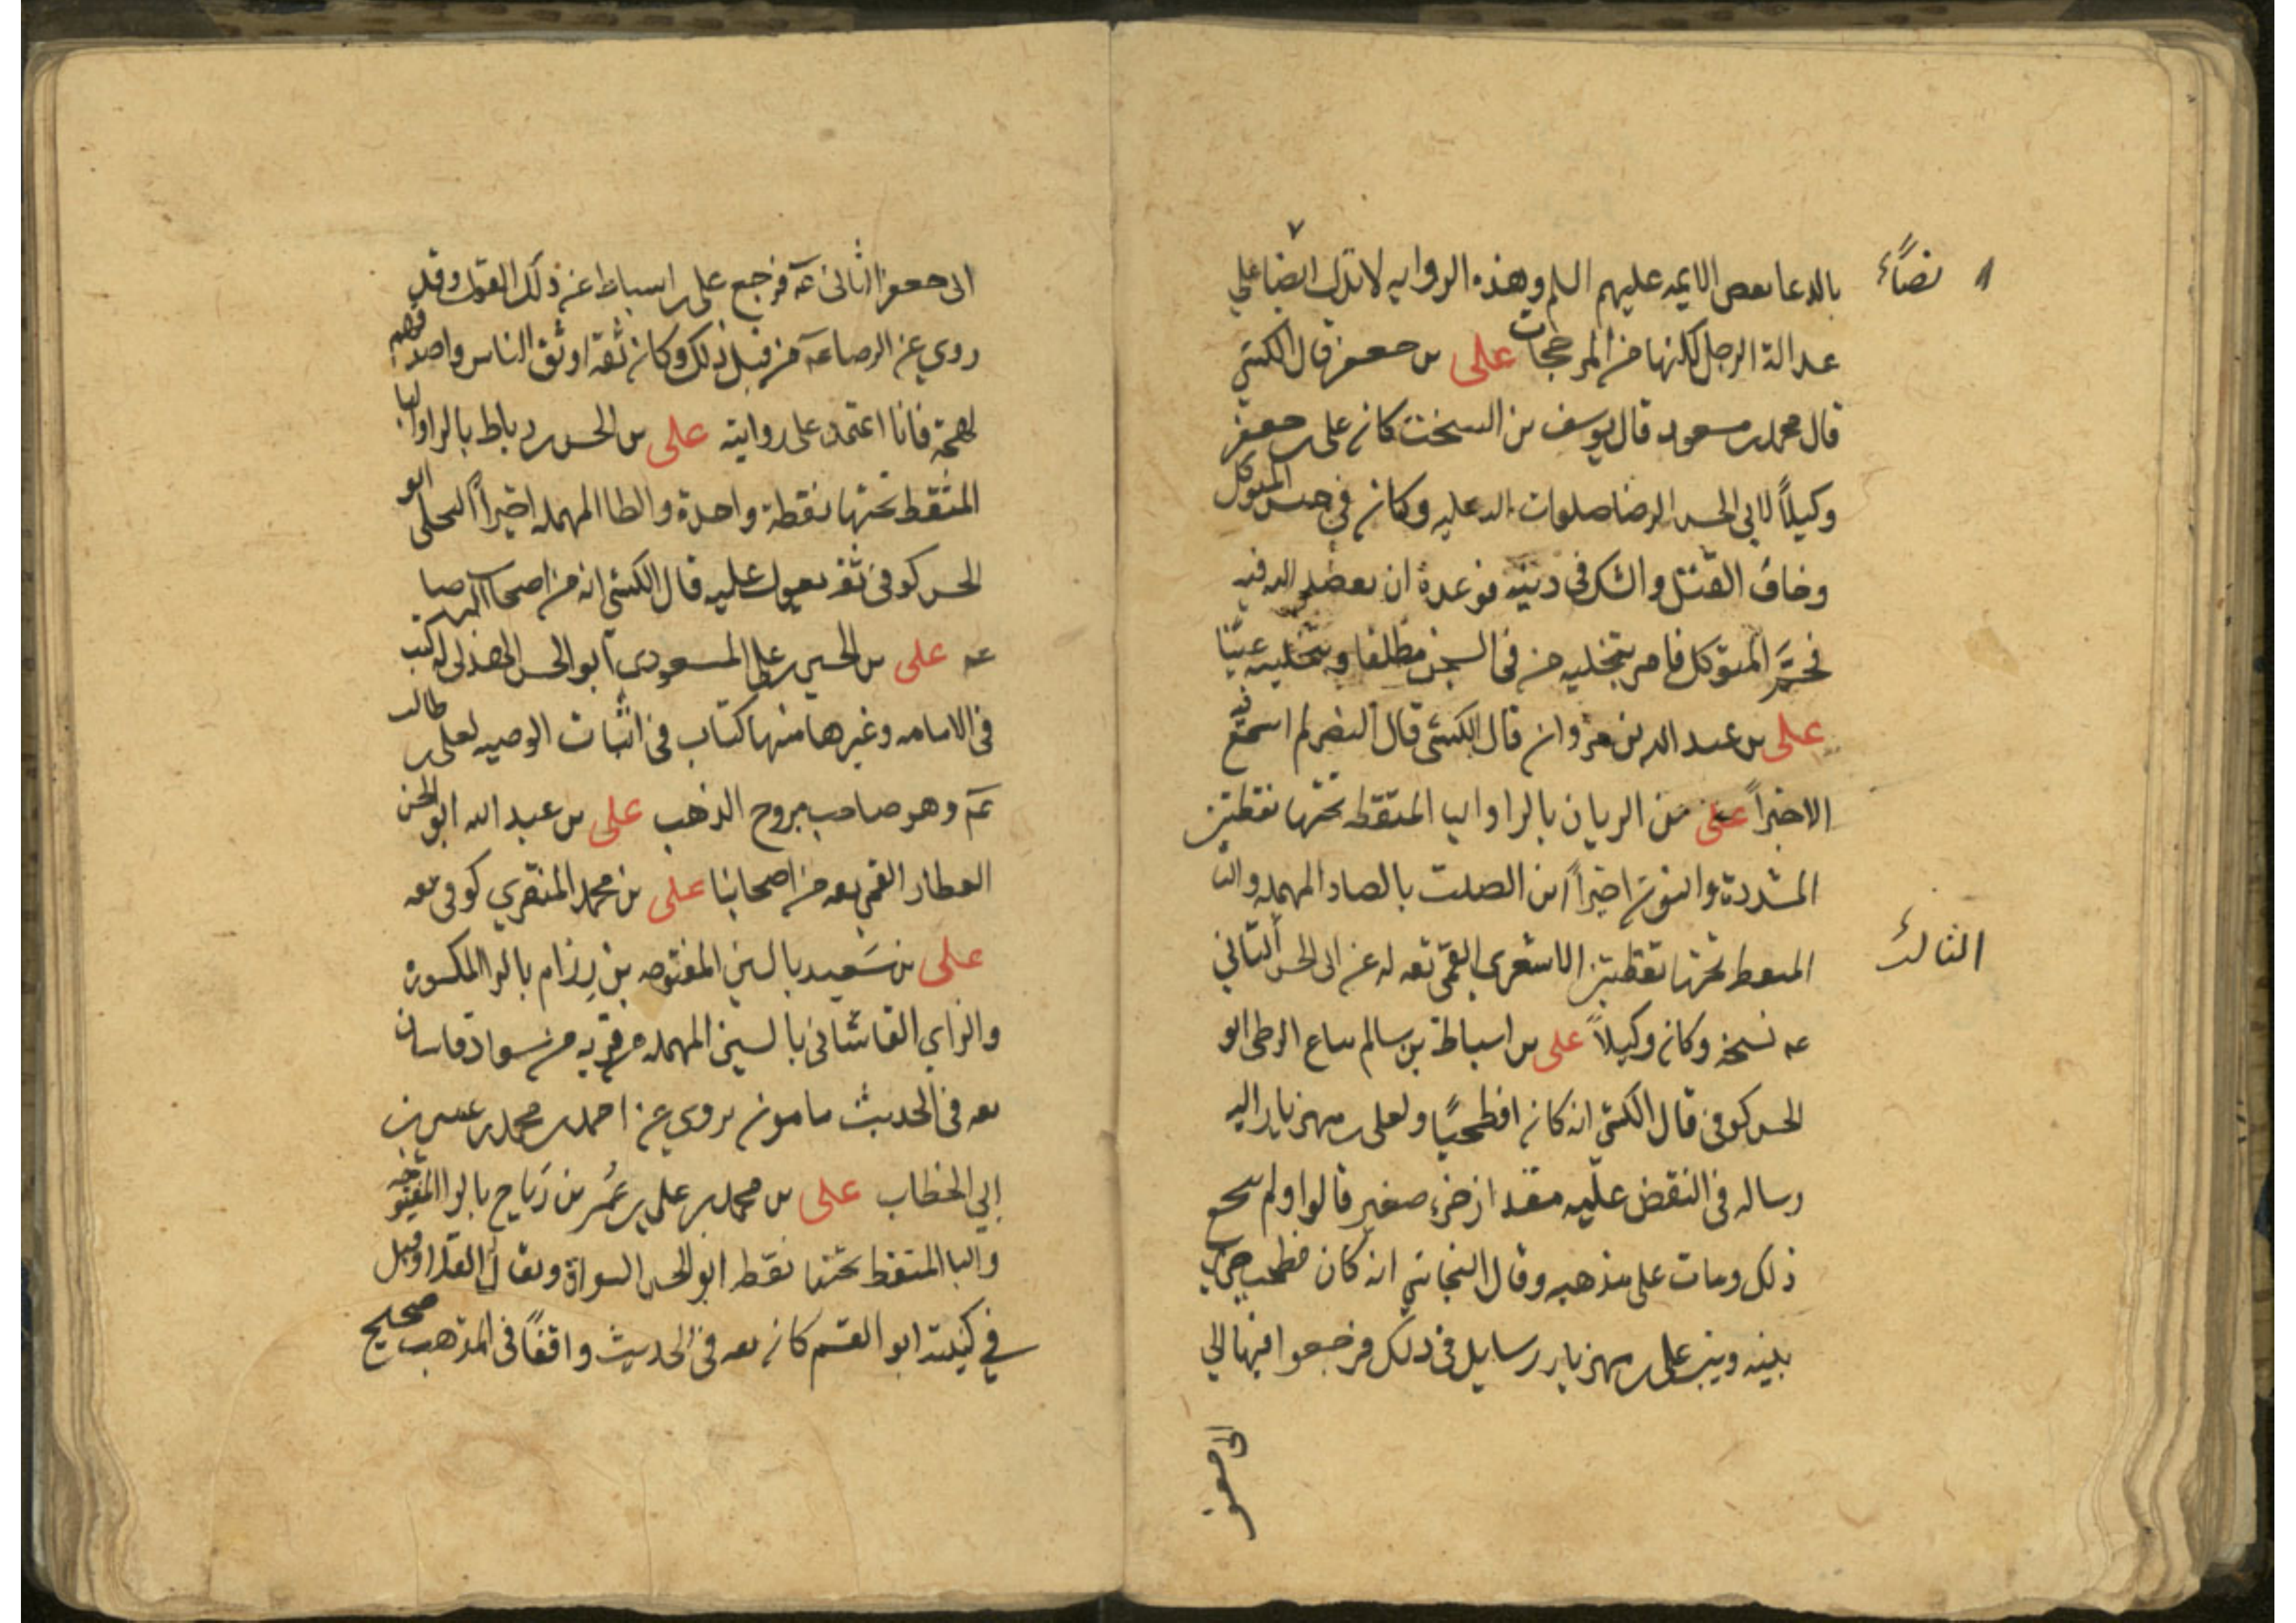 بالدعا بعض الايمه عليهم السلم وهذه الروايه لا تدل ايضا علي
نصاً
عدالة الرجل لكنها من المرجحات علي بن جعفر قال الكشي
قال محمد بن مسعود قال يوسف بن السخت كان علي بن جعفر
وكيلاً لابي الحسن الرضا صلوات الله عليه وكان في حبس المتوكل
وخاف القتل والشك في دينه فوعده ان يقصد الله فيه
فحُمَّ المتوكل فامر بتخليه من في السجن مطلقا وبتخليته عينا
علي بن عبد الله بن مروان قال الكشي قال النضر لم اسمع فيه
الا خيراً علي بن الريان بالرا واليا المنقطه تحتها نقطتين
المشددة والنون اخيراً ابن الصلت بالصاد المهمله والتا
المنقط تحتها نقطتين الاشعري القمي ثقه له عن ابي الحسن الثاني
الثالث
عه نسخه وكان وكيلاً علي بن اسباط بن سالم بياع الزطي ابو
الحسن كوفي قال الكشي انه كان افطحيًا ولعلي بن مهزيار اليه
رساله في النقض عليه مقدار جزء صغير قالوا ولم ينجع
ذلك ومات علي مذهبه وقال النجاشي انه كان فطحيا جري
بينه وبين علي بن مهزيار رسايل في ذلك فرجعوا فيها الي
ابي جعفر
ابي جعفر الثاني عه فرجع علي بن اسباط عن ذلك القول وقد
روي عن الرضا عه من قبل ذلك وكان ثقة اوثق الناس واصدقهم
لهجة فانا اعتمد علي روايته علي بن الحسن رباط بالرا والبا
المنقط تحتها نقطة واحدة والطا المهمله اخيراً البجلي ابو
الحسن كوفي ثقه يعول عليه قال الكشي انه من اصحاب الرضا
عه علي بن الحسين بن علي المسعودي ابو الحسن الهذلي له كتب
في الامامه وغيرها منها كتاب في اثبات الوصيه لعلي بن ابي طالب
عم وهو صاحب مروج الذهب علي بن عبد الله ابو الحسن
العطار القمي ثقه من اصحابنا علي بن محمد المنقري كوفي ثقه
علي بن سَعيد بالسين المفتوحه بن رِزام بالرا المكسوره
والزاي القاشاني بالسين المهمله من قريه من سواد قاسان
ثقه في الحديث مامون يروي عن احمد بن محمد بن عيسي بن
ابي الخطاب علي بن محمد بن علي بن عُمر بن رَباح بالرا المفتوحه
والبا المنقط تحتها نقطه ابو الحسن السواق ويقال القلا وقيل
في كنيته ابو القسم كان ثقه في الحديث واقفاً في المذهب صحيح